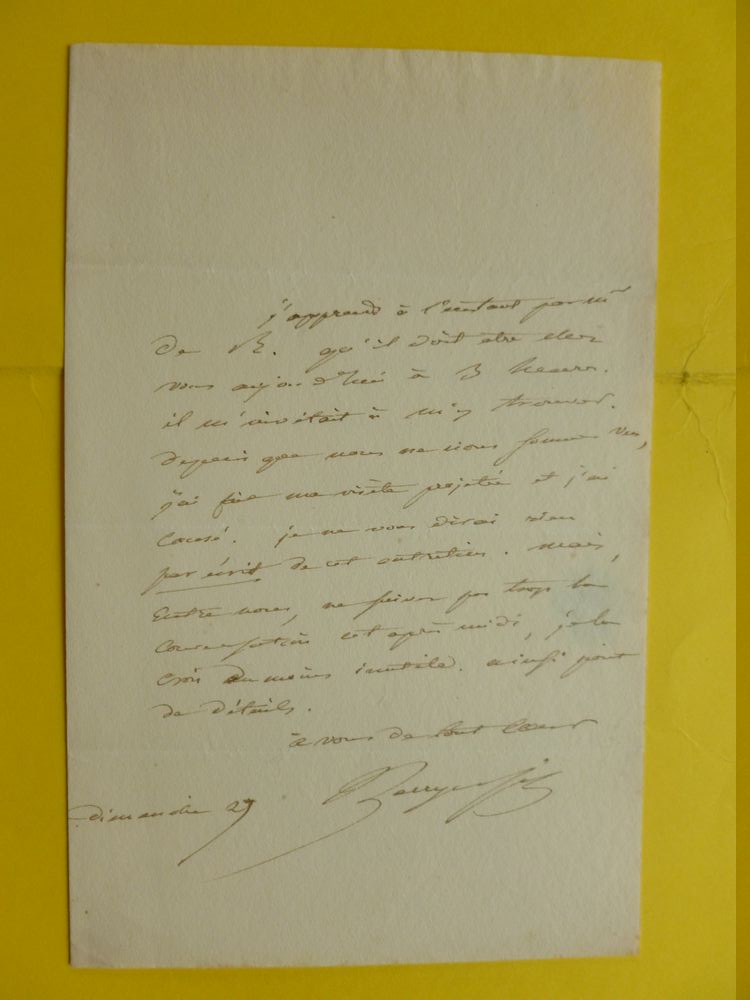 j'apprends à l'instant par mr
de R. qu'il doit être chez
vous aujourd'hui à 3 heures.
il m'invitait à m'y trouver.
depuis que nous ne nous sommes vus,
j'ai fait ma visite projetée et j'ai
causé. je ne vous dirai rien
par écrit de cet entretien. mais,
entre nous, ne suivez pas trop la
conversation cet après midi, je la
crois du moins inutile. ainsi point
de détails.
à vous de tout coeur
Berryer fils
dimanche 29